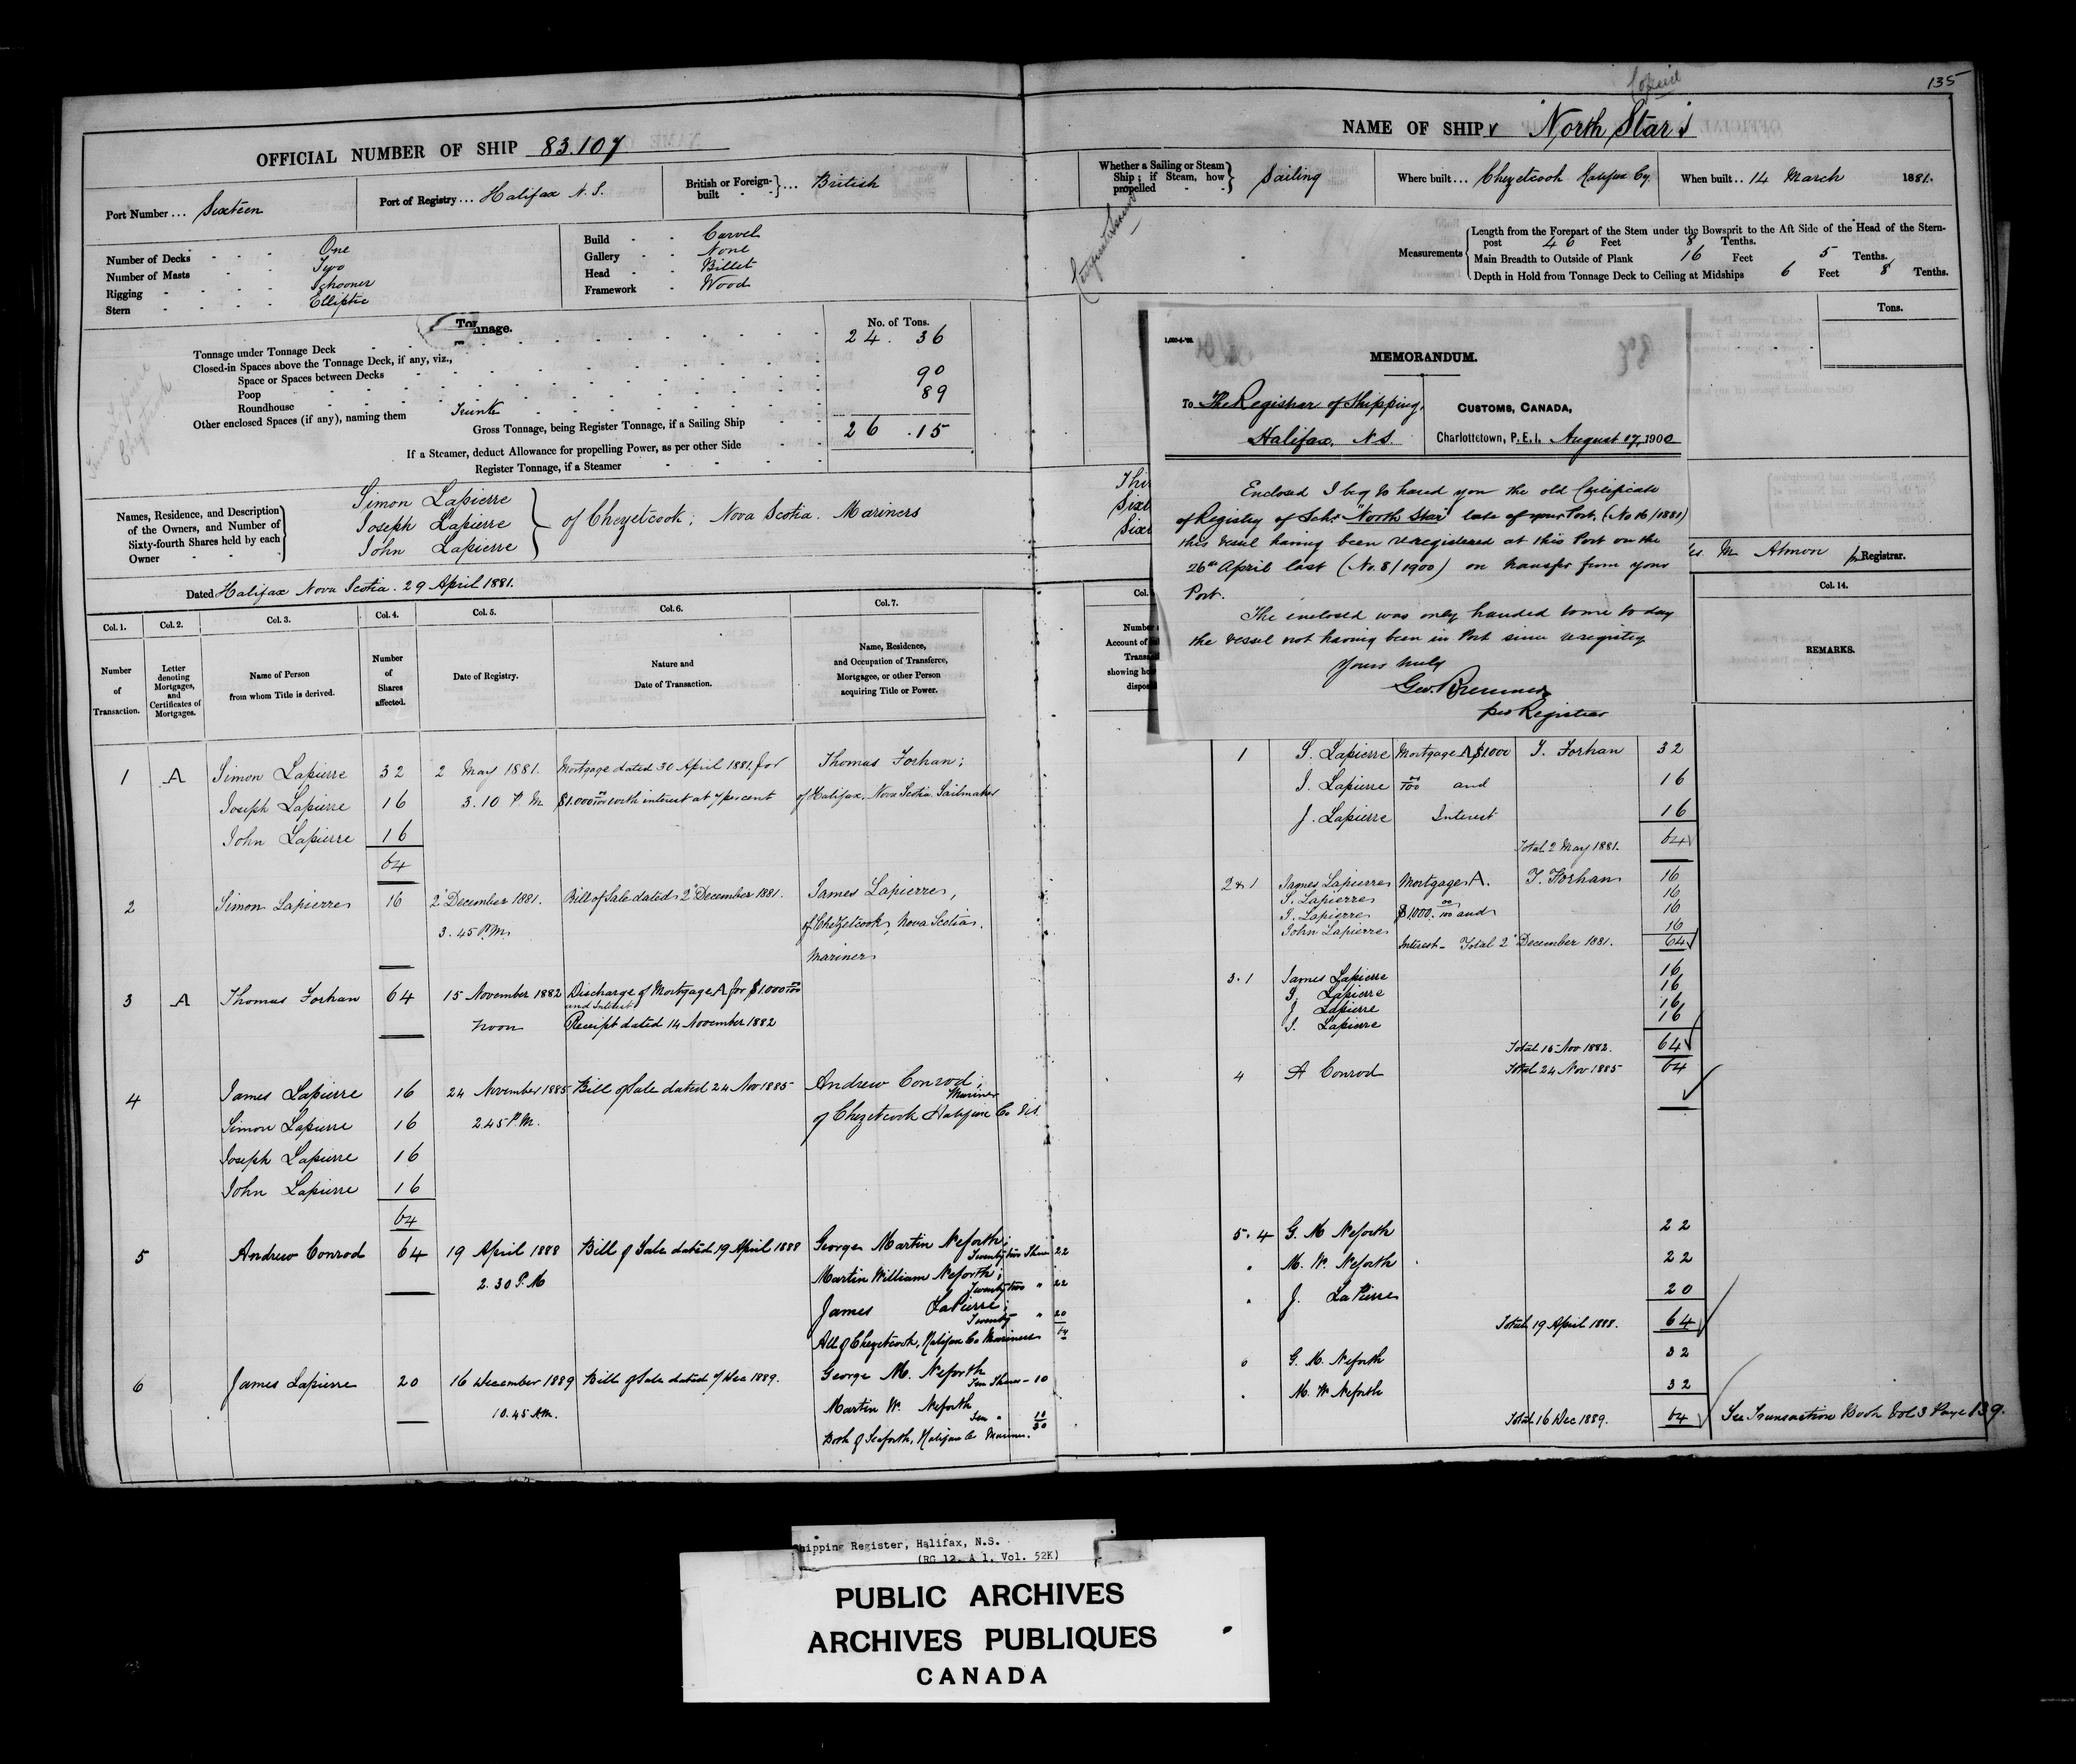 135
Copied
OFFICIAL NUMBER OF SHIP 83.107
Port Number ... Sixteen
Port of Registry ... Halifax N. S.
British or Foreign-built ... British
Number of Decks One
Number of Masts Two
Rigging Schooner
Stern Elliptic
Build Carvel
Gallery None
Head Billet
Framework Wood
Tonnage.
No. of Tons.
Tonnage under Tonnage Deck 24. 36
Closed-in Spaces above the Tonnage Deck, if any, viz.,
Space or Spaces between Decks
Poop 90
Roundhouse 89
Other enclosed Spaces (if any), naming them Trunk
Gross Tonnage, being Register Tonnage, if a Sailing Ship 26 .15
If a Steamer, deduct Allowance for propelling Power, as per other Side
Register Tonnage, if a Steamer
Names, Residence, and Description of the Owners, and Number of Sixty-fourth Shares held by each Owner
Simon Lapierre
Joseph Lapierre
John Lapierre
of Chezetcook; Nova Scotia. Mariners
Dated Halifax Nova Scotia. 29 April 1881.
Col. 1. Col. 2. Col. 3. Col. 4. Col. 5. Col. 6. Col. 7.
Number of Transaction.
Letter denoting Mortgages, and Certificates of Mortgages.
Name of Person from whom Title is derived.
Number of Shares affected.
Date of Registry.
Nature and Date of Transaction.
Name, Residence, and Occupation of Transferee, Mortgagee, or other Person acquiring Title or Power.
1 A Simon Lapierre 32 2 May 1881. Mortgage dated 30 April 1881 for Thomas Forhan;
Joseph Lapierre 16 3.10 P. M $1.000 00/100 with interest at 7 per cent of Halifax, Nova Scotia. Sailmaker
John Lapierre 16
64
2 Simon Lapierre 16 2 December 1881. Bill of Sale dated 2 December 1881. James Lapierre,
3.45 P.M. of Chezetcook, Nova Scotia.
Mariner
3 A Thomas Forhan 64 15 November 1882 Discharge of Mortgage A for $1.000 00/100
and Interest
noon Receipt dated 14 November 1882
4 James Lapierre 16 24 November 1885 Bill of Sale dated 24 Nov 1885 Andrew Conrod;
Mariner
Simon Lapierre 16 2.45 P.M. of Chezetcook Halifax Co
Joseph Lapierre 16
John Lapierre 16
64
5 Andrew Conrod 64 19 April 1888 Bill of Sale dated 19 April 1888 George Martin Neforth;
Twenty two Shares 22
2.30 P. M Martin William Neforth;
Twenty two " 22
James LaPierre;
Twenty " 20
64
All of Chezetcook, Halifax Co Mariners
6 James Lapierre 20 16 December 1889 Bill of Sale dated 7 Dec 1889. George M. Neforth
Ten Shares - 10
10.45 AM. Martin W. Neforth
Ten " 10
20
Both of Seaforth, Halifax Co Mariners.
NAME OF SHIP "North Star"
Whether a Sailing or Steam Ship; if Steam, how propelled Sailing
Where built ... Chezetcook Halifax Cy.
When built .. 14 March 1881.
Measurements
Length from the Forepart of the Stem under the Bowsprit to the Aft Side of the Head of the Stern-
post 46 Feet 8 Tenths.
Main Breadth to Outside of Plank 16 Feet 5 Tenths.
Depth in Hold from Tonnage Deck to Ceiling at Midships 6 Feet 8 Tenths.
Tons.
MEMORANDUM.
To The Registrar of Shipping,
Halifax, N.S.
CUSTOMS, CANADA,
Charlottetown, P.E.I. August 17, 1900
Enclosed I beg to hand you the old Certificate
of Registry of Schr. "North Star" late of your Port, (No 16/1881)
this vessel having been re-registered at this Port on the
26th April last (No. 8/1900) on transfer from your
Port.
The enclosed was only handed to me to day
the vessel not having been in Port since re-registry
Yours truly
Geo. Bremner
pro Registrar
M Almon
Registrar.
Col. 14.
REMARKS.
1 S. Lapierre Mortgage A $1000 T. Forhan 32
J. Lapierre 00/100 and 16
J. Lapierre Interest 16
Total 2 May 1881. 64
2&1 James Lapierre Mortgage A. T. Forhan 16
S. Lapierre 16
J. Lapierre $1000. 00/100 and 16
John Lapierre 16
Interest - Total 2 December 1881. 64
3.1 James Lapierre 16
J. Lapierre 16
J Lapierre 16
S. Lapierre 16
Total 15 Nov 1882. 64
4 A Conrod Total 24 Nov 1885 64
5.4 G. M Neforth 22
M. W. Neforth 22
J. LaPierre 20
Total 19 April 1888. 64
G. M. Neforth 32
M. W Neforth 32
Total 16 Dec 1889. 64 See Transaction Book Vol 3 Page 139.
Shipping Register, Halifax, N.S.
(RG 12, A 1, Vol. 52K)
PUBLIC ARCHIVES
ARCHIVES PUBLIQUES
CANADA